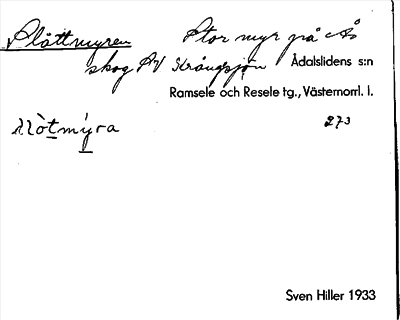 Slåttmyren Stor myr på Ås
skog NV Strångsjön Ådalslidens s:n
Ramsele och Resele tg., Västernorrl. l.
273
Sven Hiller 1933